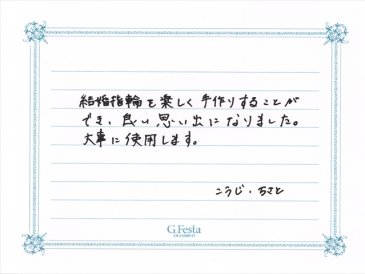 結婚指輪を楽しく手作りすることが
でき、良い思い出になりました。
大事に使用します。
こうじ・ちさと
G.Festa